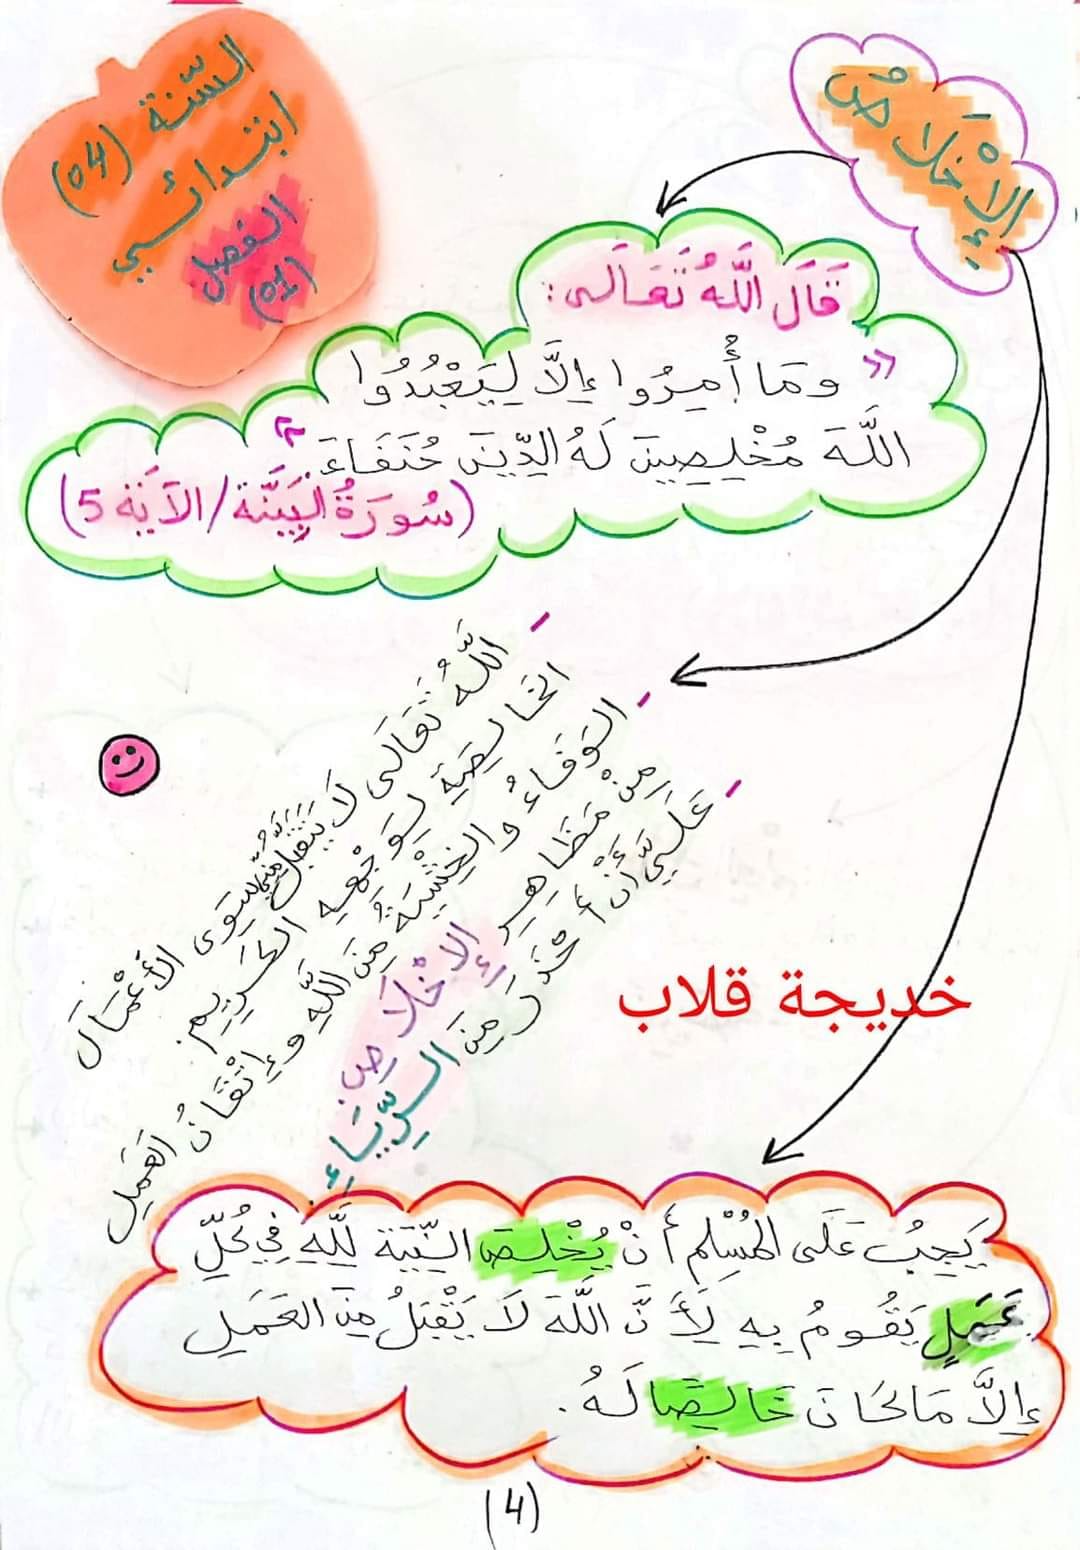 الإِخْلَاصُ
السّنة (04)
ابتدائي
الفصل
(01)
قَالَ اللَّهُ تَعَالَى:
« ومَا أُمِرُوا إِلَّا لِيَعْبُدُوا
اللَّهَ مُخْلِصِينَ لَهُ الدِّينَ حُنَفَاءَ »
(سُورَةُ لبَيِّنَة/الآيَة 5)
- اللَّهُ تَعَالَى لَا يَتَقَبَّلُ مِنَّا سِوَى الأَعْمَالَ
الخَالِصَةِ لِوَجْهِهِ الكَرِيمِ.
- الوَفَاءُ والخَشْيَةُ مِنَ اللَّهِ وإِتْقَانُ العَمَلِ
مِنْ مَظَاهِرِ الإِخْلَاصِ.
- عَلَيَّ أَنْ أَحْذَرَ مِنَ الرِّيَاءِ.
خديجة قلاب
يَجِبُ عَلَى المُسْلِمِ أَنْ يُخْلِصَ النِّيَّة لِلَّهِ فِي كُلِّ
عَمَلٍ يَقُومُ بِهِ لِأَنَّ اللَّهَ لَا يَقْبَلُ مِنَ العَمَلِ
إِلَّا مَا كَانَ خَالِصًا لَهُ.
(4)